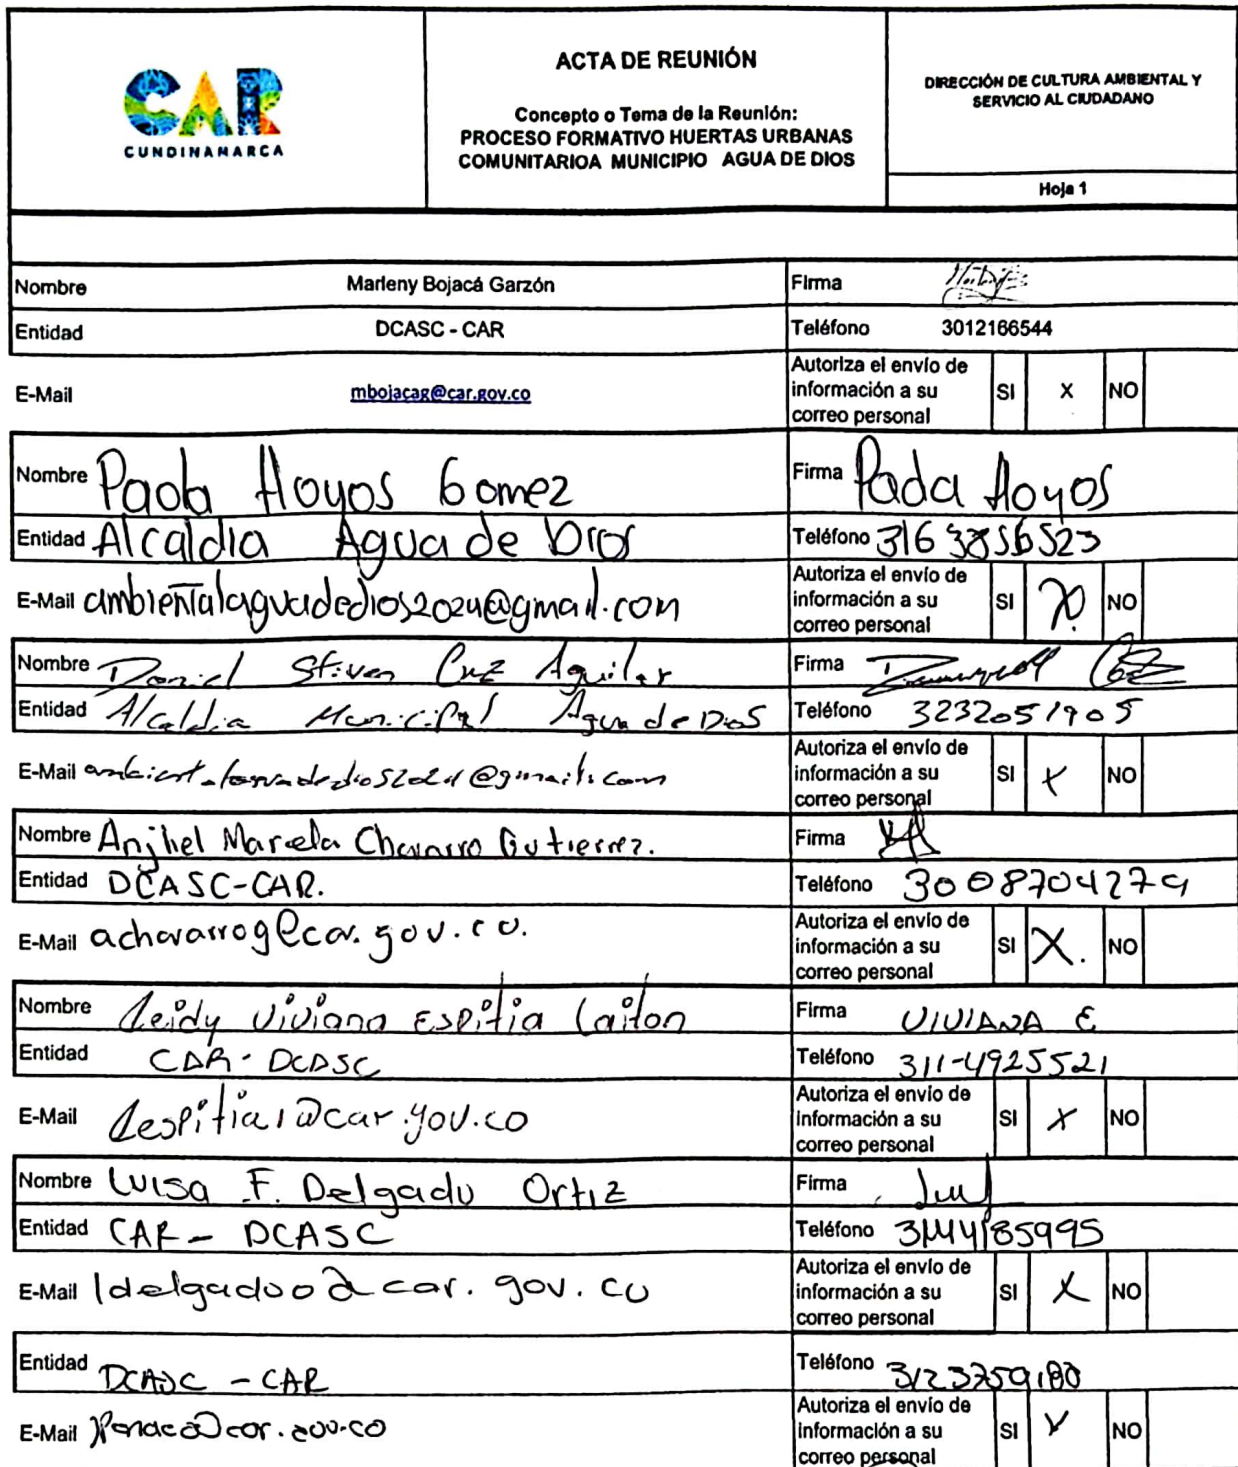 CAR
CUNDINAMARCA
ACTA DE REUNIÓN
Concepto o Tema de la Reunión:
PROCESO FORMATIVO HUERTAS URBANAS
COMUNITARIOA MUNICIPIO AGUA DE DIOS
DIRECCIÓN DE CULTURA AMBIENTAL Y
SERVICIO AL CIUDADANO
Hoja 1
Nombre Marleny Bojacá Garzón Firma
Entidad DCASC - CAR Teléfono 3012166544
E-Mail mbojacag@car.gov.co Autoriza el envío de
información a su
correo personal SI X NO
Nombre Paola Hoyos Gomez Firma Paola Hoyos
Entidad Alcaldia Agua de Dios Teléfono 316 3856523
E-Mail ambientalaguadedios2024@gmail.com Autoriza el envío de
información a su
correo personal SI X NO
Nombre Daniel Stiven Cruz Aguilar Firma
Entidad Alcaldia Municipal Agua de Dios Teléfono 3232051905
E-Mail ambientalaguadedios2024@gmail.com Autoriza el envío de
información a su
correo personal SI X NO
Nombre Anjhel Marcela Chavarro Gutierrez. Firma
Entidad DCASC-CAR. Teléfono 3008704279
E-Mail achavarrog@car.gov.co. Autoriza el envío de
información a su
correo personal SI X. NO
Nombre Leidy Viviana Espitia Laiton Firma VIVIANA E
Entidad CAR - DCASC Teléfono 311-4925521
E-Mail lespitial@car.gov.co Autoriza el envío de
información a su
correo personal SI X NO
Nombre Luisa F. Delgado Ortiz Firma
Entidad CAR - DCASC Teléfono 3144185995
E-Mail ldelgadoo@car.gov.co Autoriza el envío de
información a su
correo personal SI X NO
Entidad DCASC - CAR Teléfono 3123759180
E-Mail Autoriza el envío de
información a su
correo personal SI X NO